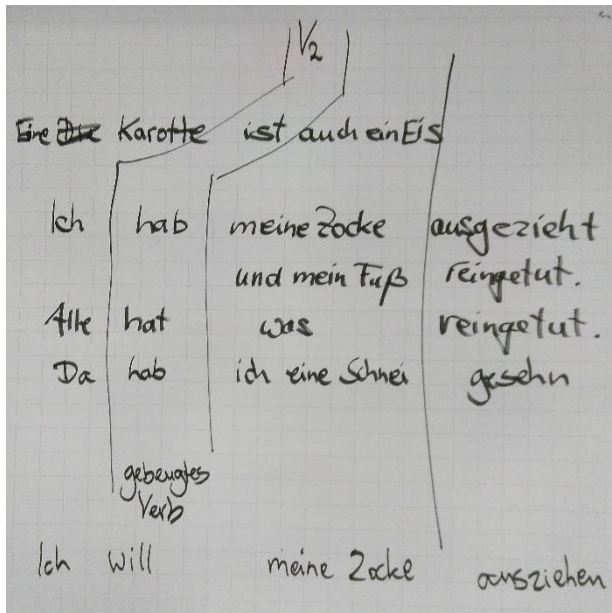 V2
Eine Karotte ist auch ein Eis
Ich hab meine Zocke ausgezieht
und mein Fuß reingetut.
Alle hat was reingetut.
Da hab ich eine Schnei gesehn
gebeugtes
Verb
Ich will meine Zocke ausziehen